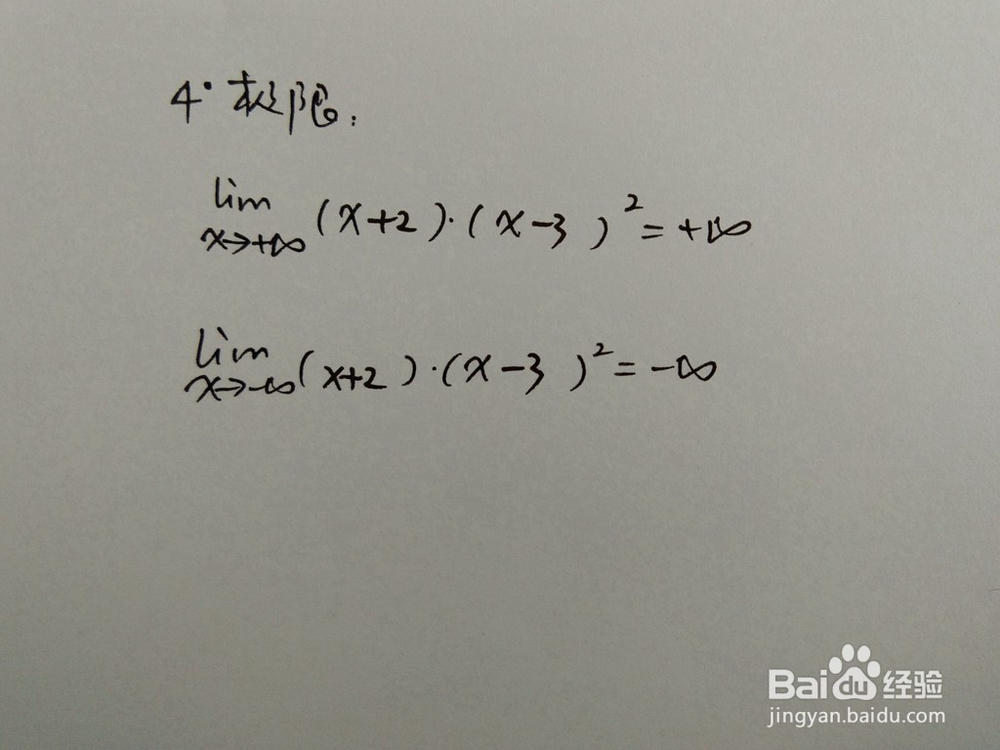 4°极限:
lim (x+2)·(x-3)² = +∞
x→+∞
lim (x+2)·(x-3)² = -∞
x→-∞
Baidu经验
jingyan.baidu.com